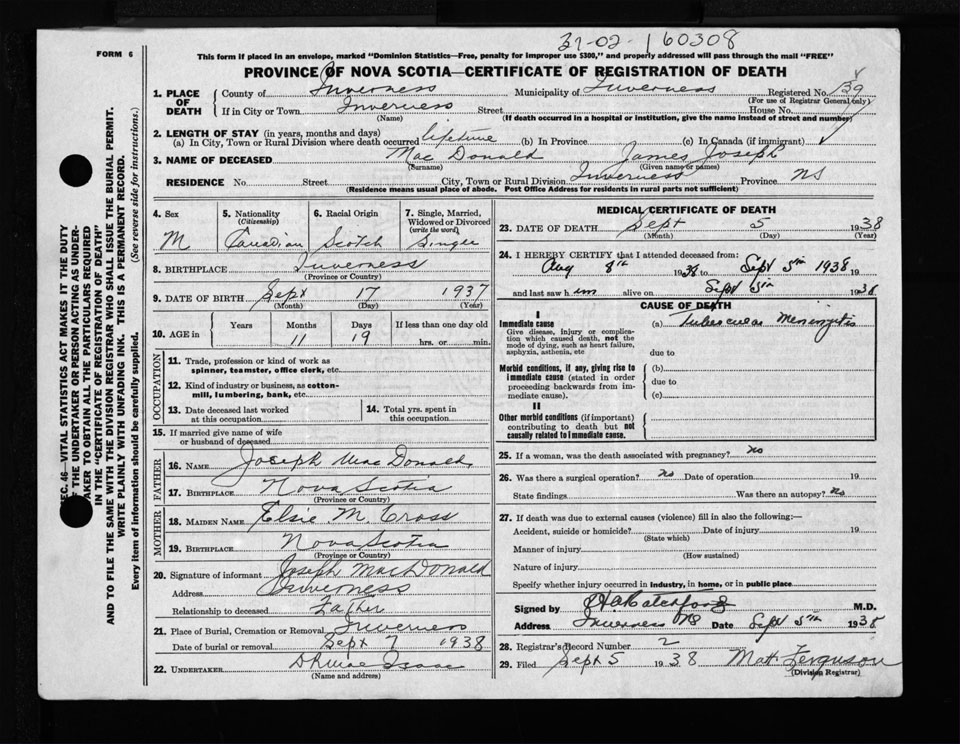 37-02-160308
FORM 6
This form if placed in an envelope, marked "Dominion Statistics—Free, penalty for improper use $300," and properly addressed will pass through the mail "FREE"
PROVINCE OF NOVA SCOTIA—CERTIFICATE OF REGISTRATION OF DEATH
1. PLACE OF DEATH
County of Inverness Municipality of Inverness Registered No. 139
(For use of Registrar General only)
If in City or Town Inverness Street House No.
(Name) (If death occurred in a hospital or institution, give the name instead of street and number)
2. LENGTH OF STAY (in years, months and days)
(a) In City, Town or Rural Division where death occurred lifetime (b) In Province (c) In Canada (if immigrant)
3. NAME OF DECEASED Mac Donald James Joseph
(Surname) (Given name or names)
RESIDENCE No. Street City, Town or Rural Division Inverness Province NS
(Residence means usual place of abode. Post Office Address for residents in rural parts not sufficient)
SEC. 46—VITAL STATISTICS ACT MAKES IT THE DUTY
OF THE UNDERTAKER OR PERSON ACTING AS UNDER-
TAKER TO OBTAIN ALL THE PARTICULARS REQUIRED
IN THE "CERTIFICATE OF REGISTRATION OF DEATH"
AND TO FILE THE SAME WITH THE DIVISION REGISTRAR WHO SHALL ISSUE THE BURIAL PERMIT.
WRITE PLAINLY WITH UNFADING INK. THIS IS A PERMANENT RECORD.
Every item of information should be carefully supplied. (See reverse side for instructions.)
4. Sex
M
5. Nationality
(Citizenship)
Canadian
6. Racial Origin
Scotch
7. Single, Married, Widowed or Divorced
(write the word)
Single
8. BIRTHPLACE Inverness
(Province or Country)
9. DATE OF BIRTH Sept 17 1937
(Month) (Day) (Year)
10. AGE in
Years Months Days If less than one day old
11 19 hrs. or min.
OCCUPATION
11. Trade, profession or kind of work as
spinner, teamster, office clerk, etc.
12. Kind of industry or business, as cotton-
mill, lumbering, bank, etc.
13. Date deceased last worked
at this occupation
14. Total yrs. spent in
this occupation
15. If married give name of wife
or husband of deceased
FATHER
16. NAME Joseph Mac Donald
17. BIRTHPLACE Nova Scotia
(Province or Country)
MOTHER
18. MAIDEN NAME Elsie M. Cross
19. BIRTHPLACE Nova Scotia
(Province or Country)
20. Signature of informant Joseph MacDonald
Address Inverness
Relationship to deceased Father
21. Place of Burial, Cremation or Removal Inverness
Date of burial or removal Sept 7 1938
22. UNDERTAKER Isaac
(Name and address)
MEDICAL CERTIFICATE OF DEATH
23. DATE OF DEATH Sept 5 1938
(Month) (Day) (Year)
24. I HEREBY CERTIFY that I attended deceased from:
Aug 8th 1938 to Sept 5th 1938 19
and last saw him alive on Sept 5th 1938
CAUSE OF DEATH
I
Immediate cause
Give disease, injury or complica-
tion which caused death, not the
mode of dying, such as heart failure,
asphyxia, asthenia, etc
(a) Tubercular Meningitis
due to
Morbid conditions, if any, giving rise to
immediate cause (stated in order
proceeding backwards from im-
mediate cause).
(b)
due to
(c)
II
Other morbid conditions (if important)
contributing to death but not
causally related to immediate cause.
25. If a woman, was the death associated with pregnancy? no
26. Was there a surgical operation? no Date of operation 19
State findings Was there an autopsy? no
27. If death was due to external causes (violence) fill in also the following:—
Accident, suicide or homicide? Date of injury 19
(State which)
Manner of injury
(How sustained)
Nature of injury
Specify whether injury occurred in industry, in home, or in public place
Signed by M.D.
Address Inverness NS Date Sept 5th 1938
28. Registrar's Record Number 2
29. Filed Sept 5 1938 Matt Ferguson
(Division Registrar)